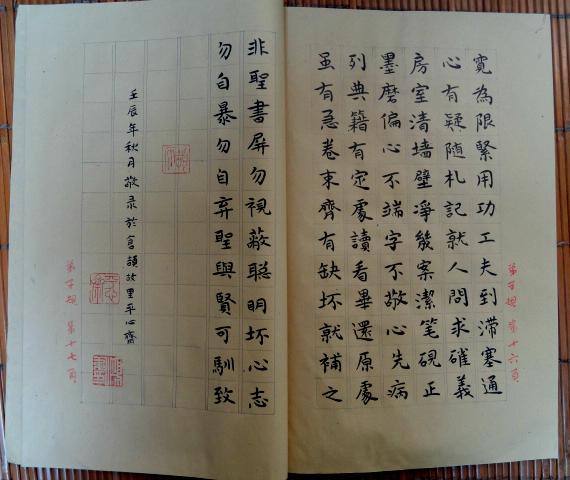 弟子規 第十六頁
寬為限緊用功工夫到滞塞通
心有疑隨札記就人問求確義
房室清墙壁凈幾案潔笔硯正
墨磨偏心不端字不敬心先病
列典籍有定處讀看畢還原處
虽有急卷束齊有缺坏就補之
非聖書屏勿視蔽聰明坏心志
勿自暴勿自弃聖與賢可馴致
壬辰年秋月敬录於倉頡故里平心齋
弟子規 第十七頁